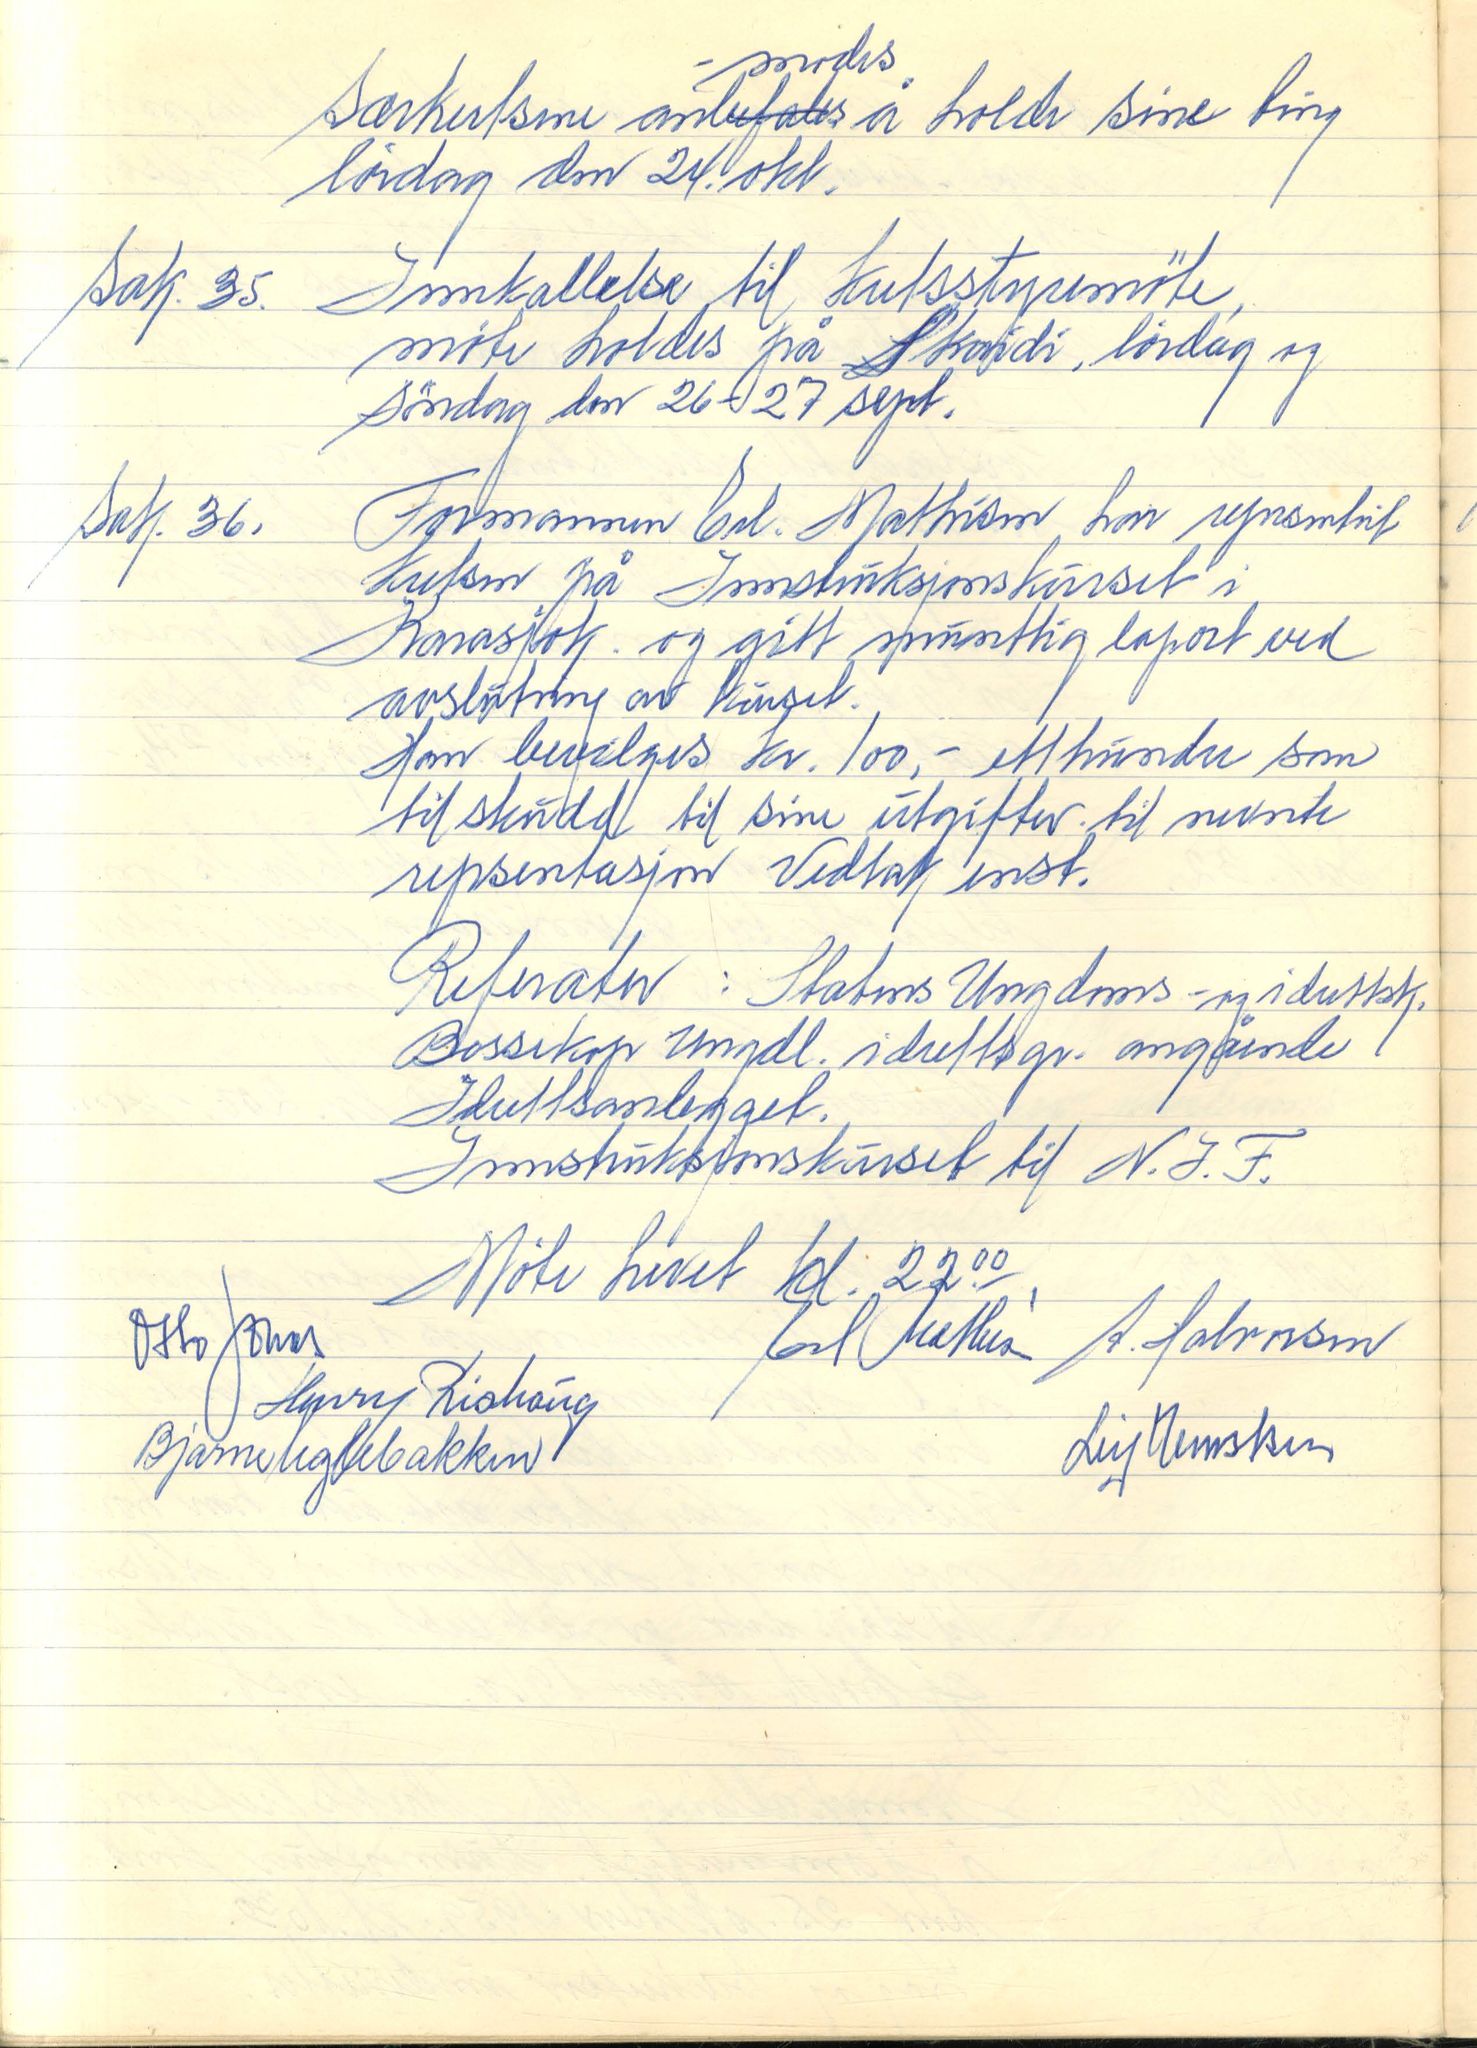 -modes
Særkretsene anbefales å holde sine ting
lördag den 24. okt.
Sak. 35. Innkallelse til kretsstyremöte,
möte holdes på Skaidi, lördag og
söndag den 26-27 sept.
Sak. 36. Formannen Erl. Mathisen har representert
kretsen på Innstruksjonskurset i
Karasjok. og gitt munttlig raport ved
avslutning av kurset.
Han bevilges kr. 100,- etthundre som
tilskudd til sine utgifter til nevnte
repsentasjon Vedtak enst.
Referater : Statens Ungdoms- og idrettsk.
Bossekop Ungdl. idrettsgr. angående
Idrettsanlegget.
Innstruksjonskurset til N.I.F.
Möte hevet kl. 22 00
Otto Jonas Erl Mathis A. Halvorsen
Henry Rishaug
Bjarne Uglebakken Leif